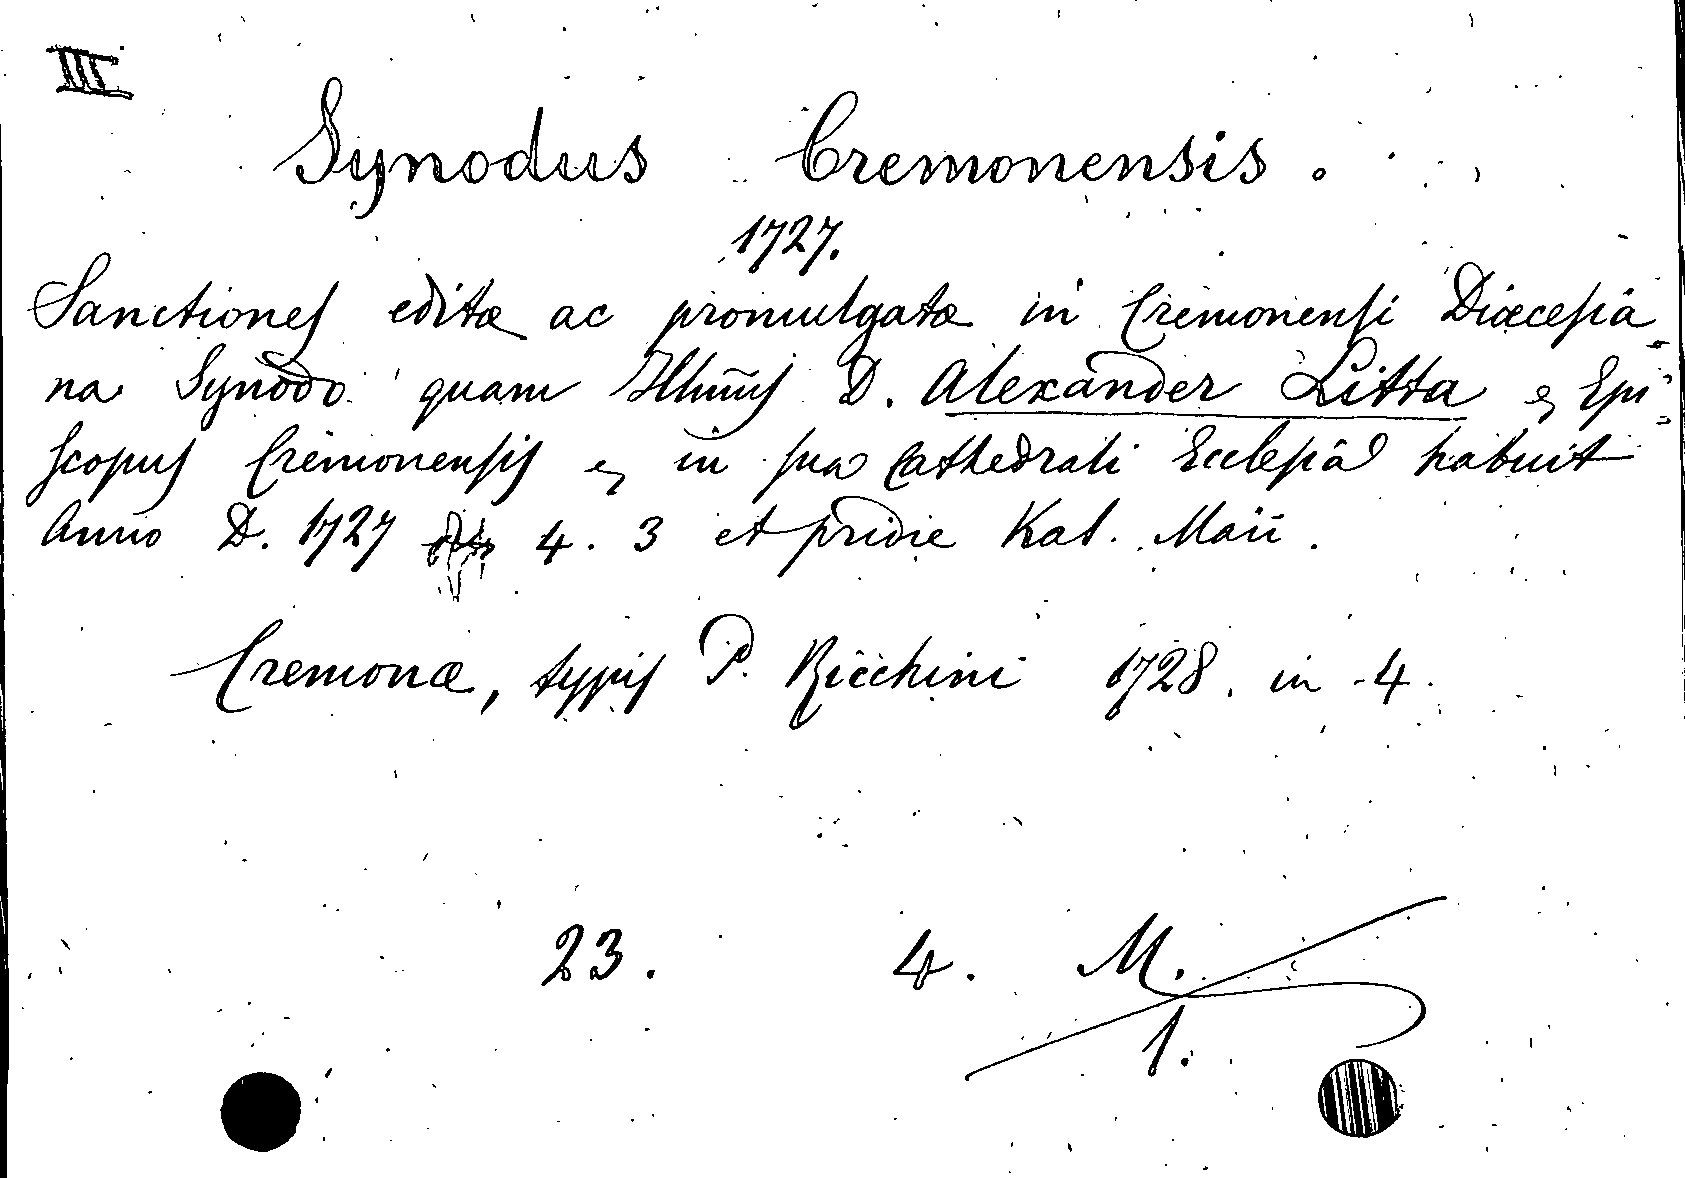 III
Synodus Cremonensis.
1727.
Sanctiones editæ ac promulgatæ in Cremonensi Diœcesia
na Synodo quam Illm̃us D. Alexander Litta & Epi=
scopus Cremonensis & in sua Cathedrali Ecclesia habuit
Anno D. 1727 4. 3 et pridie Kal. Maii.
Cremonæ, typis P. Ricchini 1728. in -4.
23. 4. M.
1.